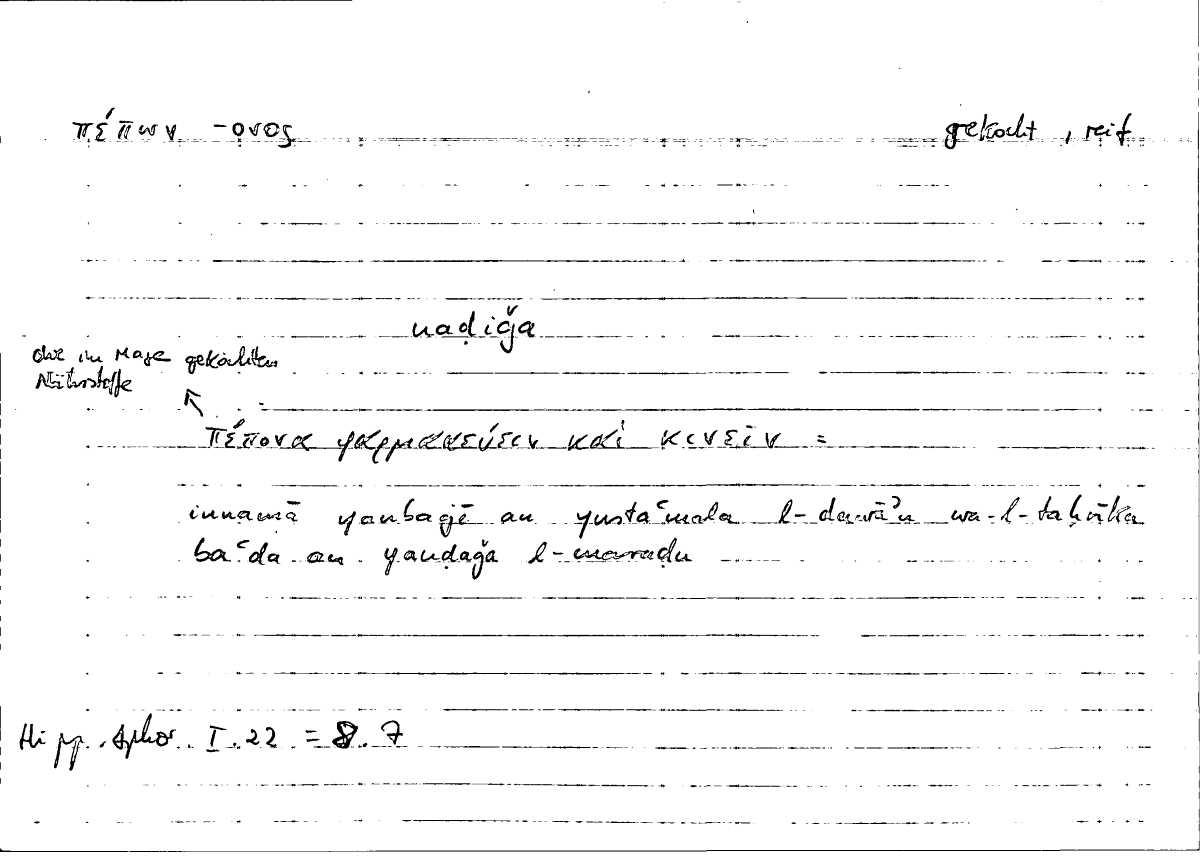 πέπων -ονος gekocht, reif
naḍiǧa
die im Mage gekochten
Nährstoffe
πέπονα φαρμακεύειν καὶ κινεῖν =
innamā yanbaġī an yustaʿmala l-dawāʾu wa-l-taḥrīka
baʿda an yanḍaǧa l-maraḍu
Hipp. Aphor. I.22 = 8.7